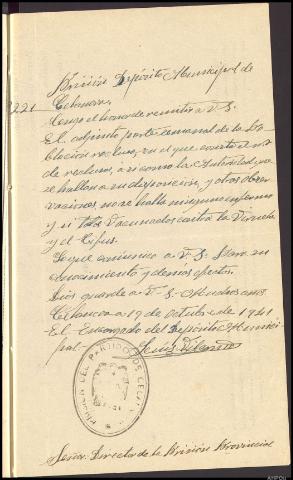 Prisión Depósito Municipal de
221 Celanova.
Tengo el honor de remitir a V.S.
El adjunto parte semanal de la Po-
blación reclusa en el que consta el nº
de reclusos, asi como la Autoridad que
se hallan a su disposición, y otras obser
vaciones, no se halla ninguno enfermo
y si todos Vacunados contra la Viruela
y el Tifus.
Lo que comunico a V.S. para su
conocimiento y demás efectos.
Dios guarde a V.S. Muchos años
Celanova a 19 de Octubre de 1941
El Encargado del Depósito Munici
pal=
PRISION DEL PARTIDO DE CELANOVA
Señor Director de la Prisión Provincial